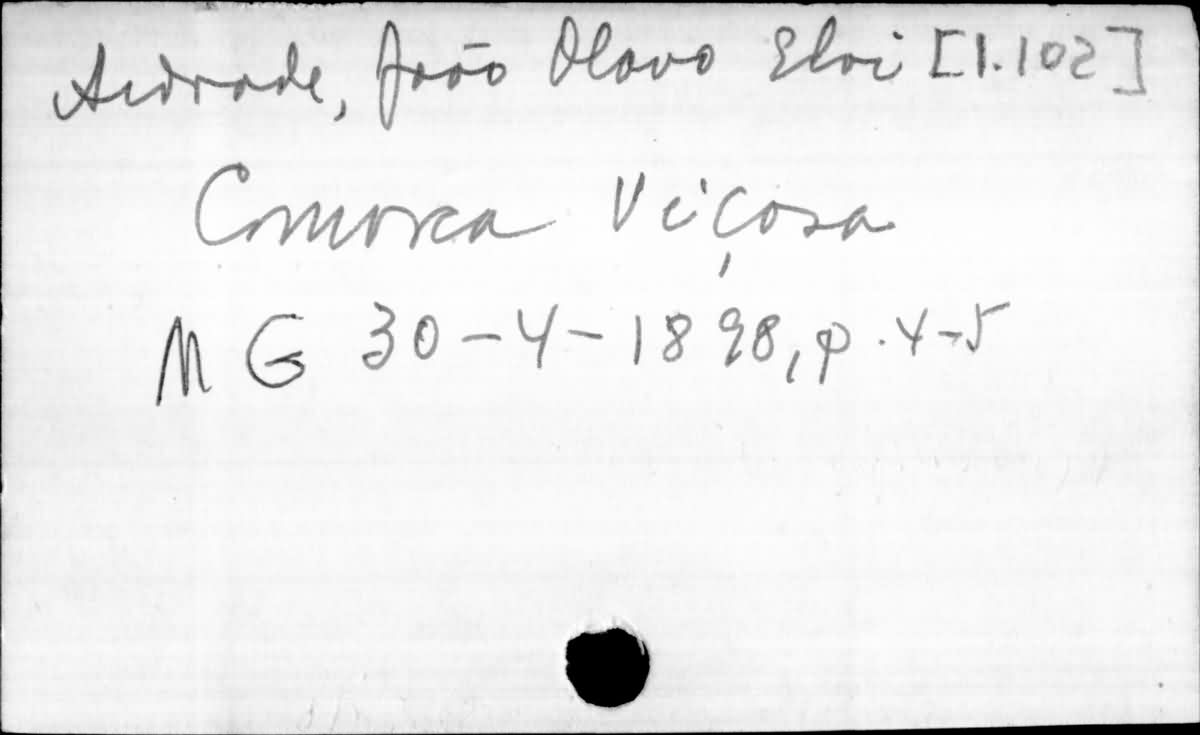 Andrade, João Olavo Eloi [1.102]
Comarca Viçosa
MG 30-4-1898, p. 4-5